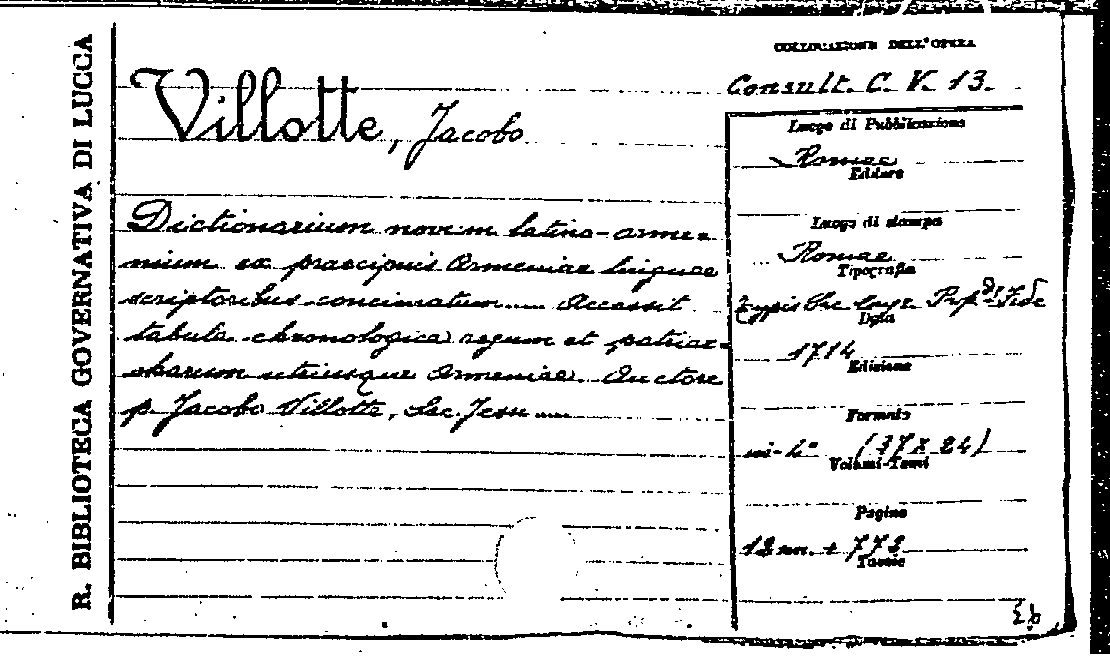 R. BIBLIOTECA GOVERNATIVA DI LUCCA
COLLOCAZIONE DELL'OPERA
Consult. C. V. 13.
Villotte, Jacobo
Dictionarium novum latino-arme-
nium ex praecipuis Armeniae linguae
scriptoribus concinnatum.... Accessit
tabula chronologica regum et patriar-
charum utriusque Armeniae. Auctore
p. Jacobo Villotte, Soc. Jesu....
Luogo di Pubblicazione
Romae
Editore
Luogo di stampa
Romae
Tipografia
typis Sac. Cong. Prop. de Fide
Data
1714
Edizione
Formato
in-4° (37 x 24)
Volumi-Tomi
Pagine
12 nn. + 773
Tavole